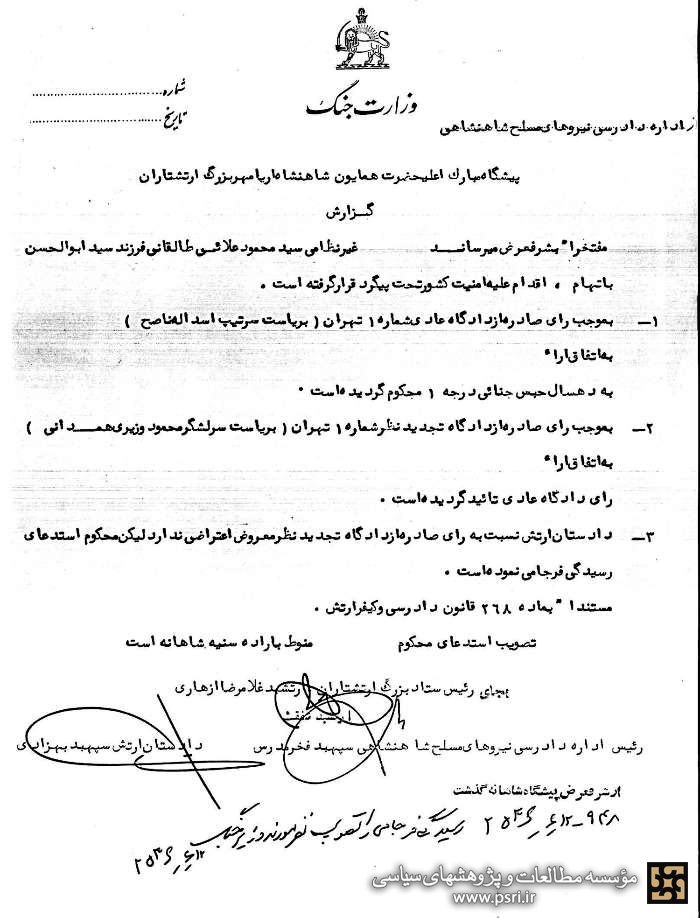 وزارت جنگ
شماره
تاریخ
از اداره دادرسی نیروهای مسلح شاهنشاهی
پیشگاه مبارک اعلیحضرت همایون شاهنشاه آریامهر بزرگ ارتشتاران
گزارش
مفتخراً بشرفعرض میرساند غیرنظامی سید محمود علائی طالقانی فرزند سید ابوالحسن
باتهام ، اقدام علیه امنیت کشور تحت پیگرد قرار گرفته است .
۱ـ بموجب رای صادره از دادگاه عادی شماره ۱ تهران ( بریاست سرتیپ اسداله ناصح )
به اتفاق آراء
به ده سال حبس جنائی درجه ۱ محکوم گردیده است .
۲ـ بموجب رای صادره از دادگاه تجدید نظر شماره ۱ تهران ( بریاست سرلشگر محمود وزیری همدانی )
به اتفاق آراء
رای دادگاه عادی تائید گردیده است .
۳ـ دادستان ارتش نسبت به رای صادره از دادگاه تجدید نظر معروض اعتراضی ندارد لیکن محکوم استدعای
رسیدگی فرجامی نموده است .
مستنداً بماده ۲۶۸ قانون دادرسی و کیفر ارتش .
تصویب استدعای محکوم منوط باراده سنیه شاهانه است
بجای رئیس ستاد بزرگ ارتشتاران ارتشبد غلامرضا ازهاری
ارتشبد شفقت
رئیس اداره دادرسی نیروهای مسلح شاهنشاهی سپهبد فخر مدرس دادستان ارتش سپهبد بهزادی
از شرفعرض پیشگاه شاهانه گذشت
رسیدگی فرجامی را تصویب فرمودند وزیر جنگ
مؤسسه مطالعات و پژوهشهای سیاسی
www.psri.ir